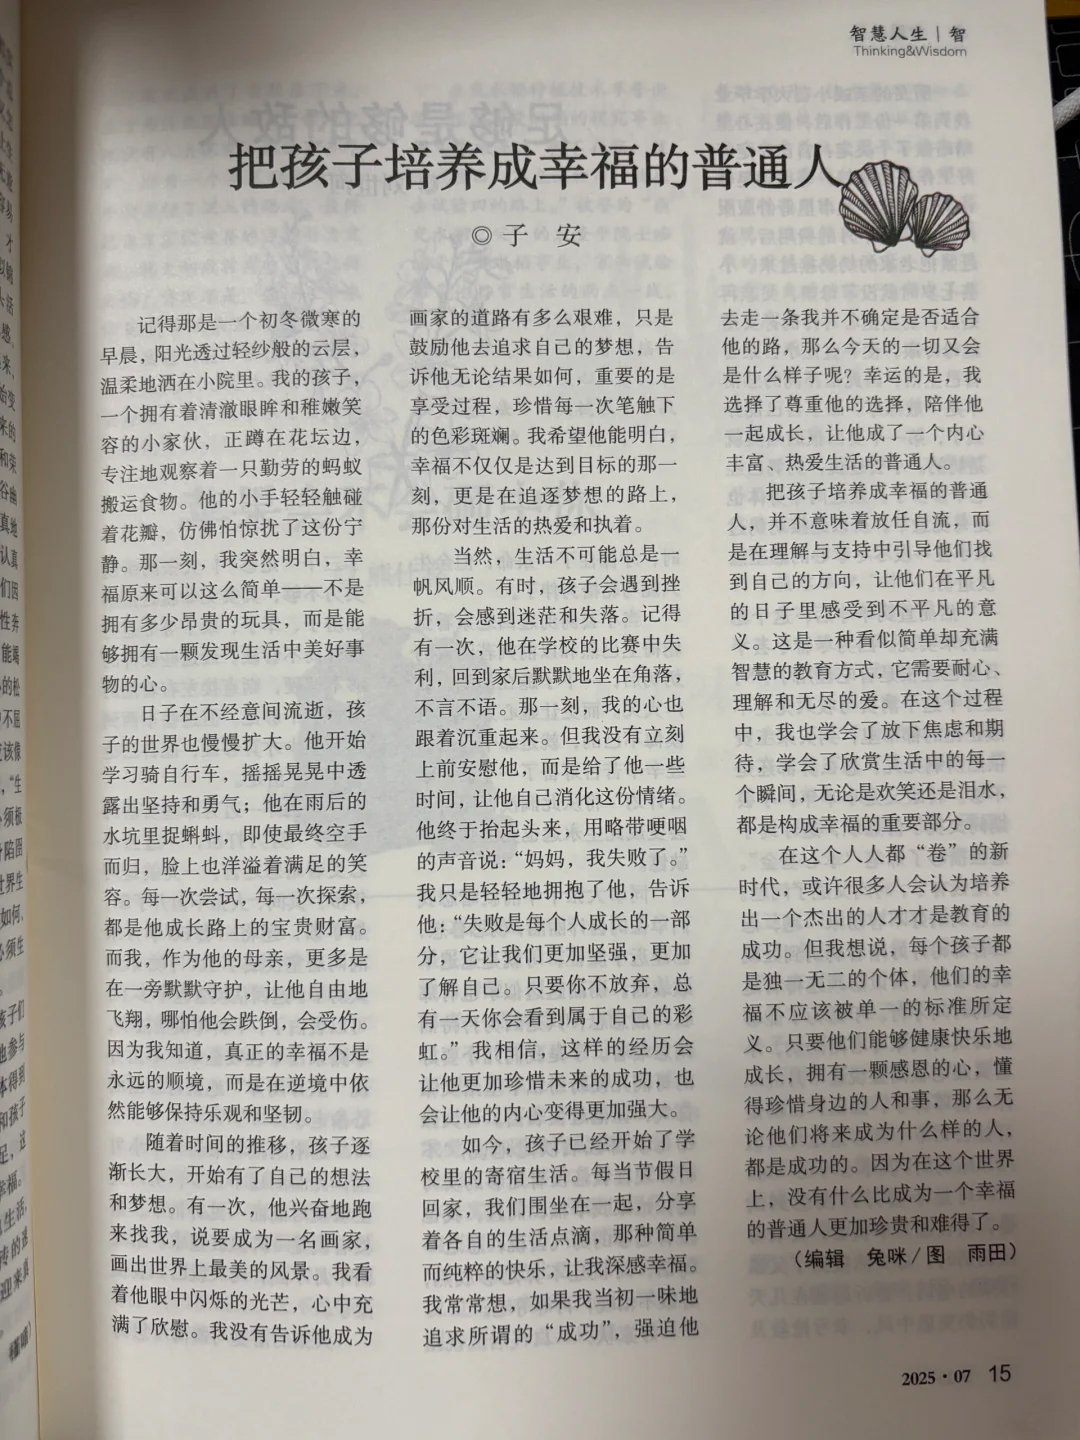 智慧人生｜智
Thinking&Wisdom
把孩子培养成幸福的普通人
◎子 安
记得那是一个初冬微寒的
早晨，阳光透过轻纱般的云层，
温柔地洒在小院里。我的孩子，
一个拥有着清澈眼眸和稚嫩笑
容的小家伙，正蹲在花坛边，
专注地观察着一只勤劳的蚂蚁
搬运食物。他的小手轻轻触碰
着花瓣，仿佛怕惊扰了这份宁
静。那一刻，我突然明白，幸
福原来可以这么简单——不是
拥有多少昂贵的玩具，而是能
够拥有一颗发现生活中美好事
物的心。
日子在不经意间流逝，孩
子的世界也慢慢扩大。他开始
学习骑自行车，摇摇晃晃中透
露出坚持和勇气；他在雨后的
水坑里捉蝌蚪，即使最终空手
而归，脸上也洋溢着满足的笑
容。每一次尝试，每一次探索，
都是他成长路上的宝贵财富。
而我，作为他的母亲，更多是
在一旁默默守护，让他自由地
飞翔，哪怕他会跌倒，会受伤。
因为我知道，真正的幸福不是
永远的顺境，而是在逆境中依
然能够保持乐观和坚韧。
随着时间的推移，孩子逐
渐长大，开始有了自己的想法
和梦想。有一次，他兴奋地跑
来找我，说要成为一名画家，
画出世界上最美的风景。我看
着他眼中闪烁的光芒，心中充
满了欣慰。我没有告诉他成为
画家的道路有多么艰难，只是
鼓励他去追求自己的梦想，告
诉他无论结果如何，重要的是
享受过程，珍惜每一次笔触下
的色彩斑斓。我希望他能明白，
幸福不仅仅是达到目标的那一
刻，更是在追逐梦想的路上，
那份对生活的热爱和执着。
当然，生活不可能总是一
帆风顺。有时，孩子会遇到挫
折，会感到迷茫和失落。记得
有一次，他在学校的比赛中失
利，回到家后默默地坐在角落，
不言不语。那一刻，我的心也
跟着沉重起来。但我没有立刻
上前安慰他，而是给了他一些
时间，让他自己消化这份情绪。
他终于抬起头来，用略带哽咽
的声音说：“妈妈，我失败了。”
我只是轻轻地拥抱了他，告诉
他：“失败是每个人成长的一部
分，它让我们更加坚强，更加
了解自己。只要你不放弃，总
有一天你会看到属于自己的彩
虹。”我相信，这样的经历会
让他更加珍惜未来的成功，也
会让他的内心变得更加强大。
如今，孩子已经开始了学
校里的寄宿生活。每当节假日
回家，我们围坐在一起，分享
着各自的生活点滴，那种简单
而纯粹的快乐，让我深感幸福。
我常常想，如果我当初一味地
追求所谓的“成功”，强迫他
去走一条我并不确定是否适合
他的路，那么今天的一切又会
是什么样子呢？幸运的是，我
选择了尊重他的选择，陪伴他
一起成长，让他成了一个内心
丰富、热爱生活的普通人。
把孩子培养成幸福的普通
人，并不意味着放任自流，而
是在理解与支持中引导他们找
到自己的方向，让他们在平凡
的日子里感受到不平凡的意
义。这是一种看似简单却充满
智慧的教育方式，它需要耐心、
理解和无尽的爱。在这个过程
中，我也学会了放下焦虑和期
待，学会了欣赏生活中的每一
个瞬间，无论是欢笑还是泪水，
都是构成幸福的重要部分。
在这个人人都“卷”的新
时代，或许很多人会认为培养
出一个杰出的人才才是教育的
成功。但我想说，每个孩子都
是独一无二的个体，他们的幸
福不应该被单一的标准所定
义。只要他们能够健康快乐地
成长，拥有一颗感恩的心，懂
得珍惜身边的人和事，那么无
论他们将来成为什么样的人，
都是成功的。因为在这个世界
上，没有什么比成为一个幸福
的普通人更加珍贵和难得了。
（编辑 兔咪/图 雨田）
2025·07 15